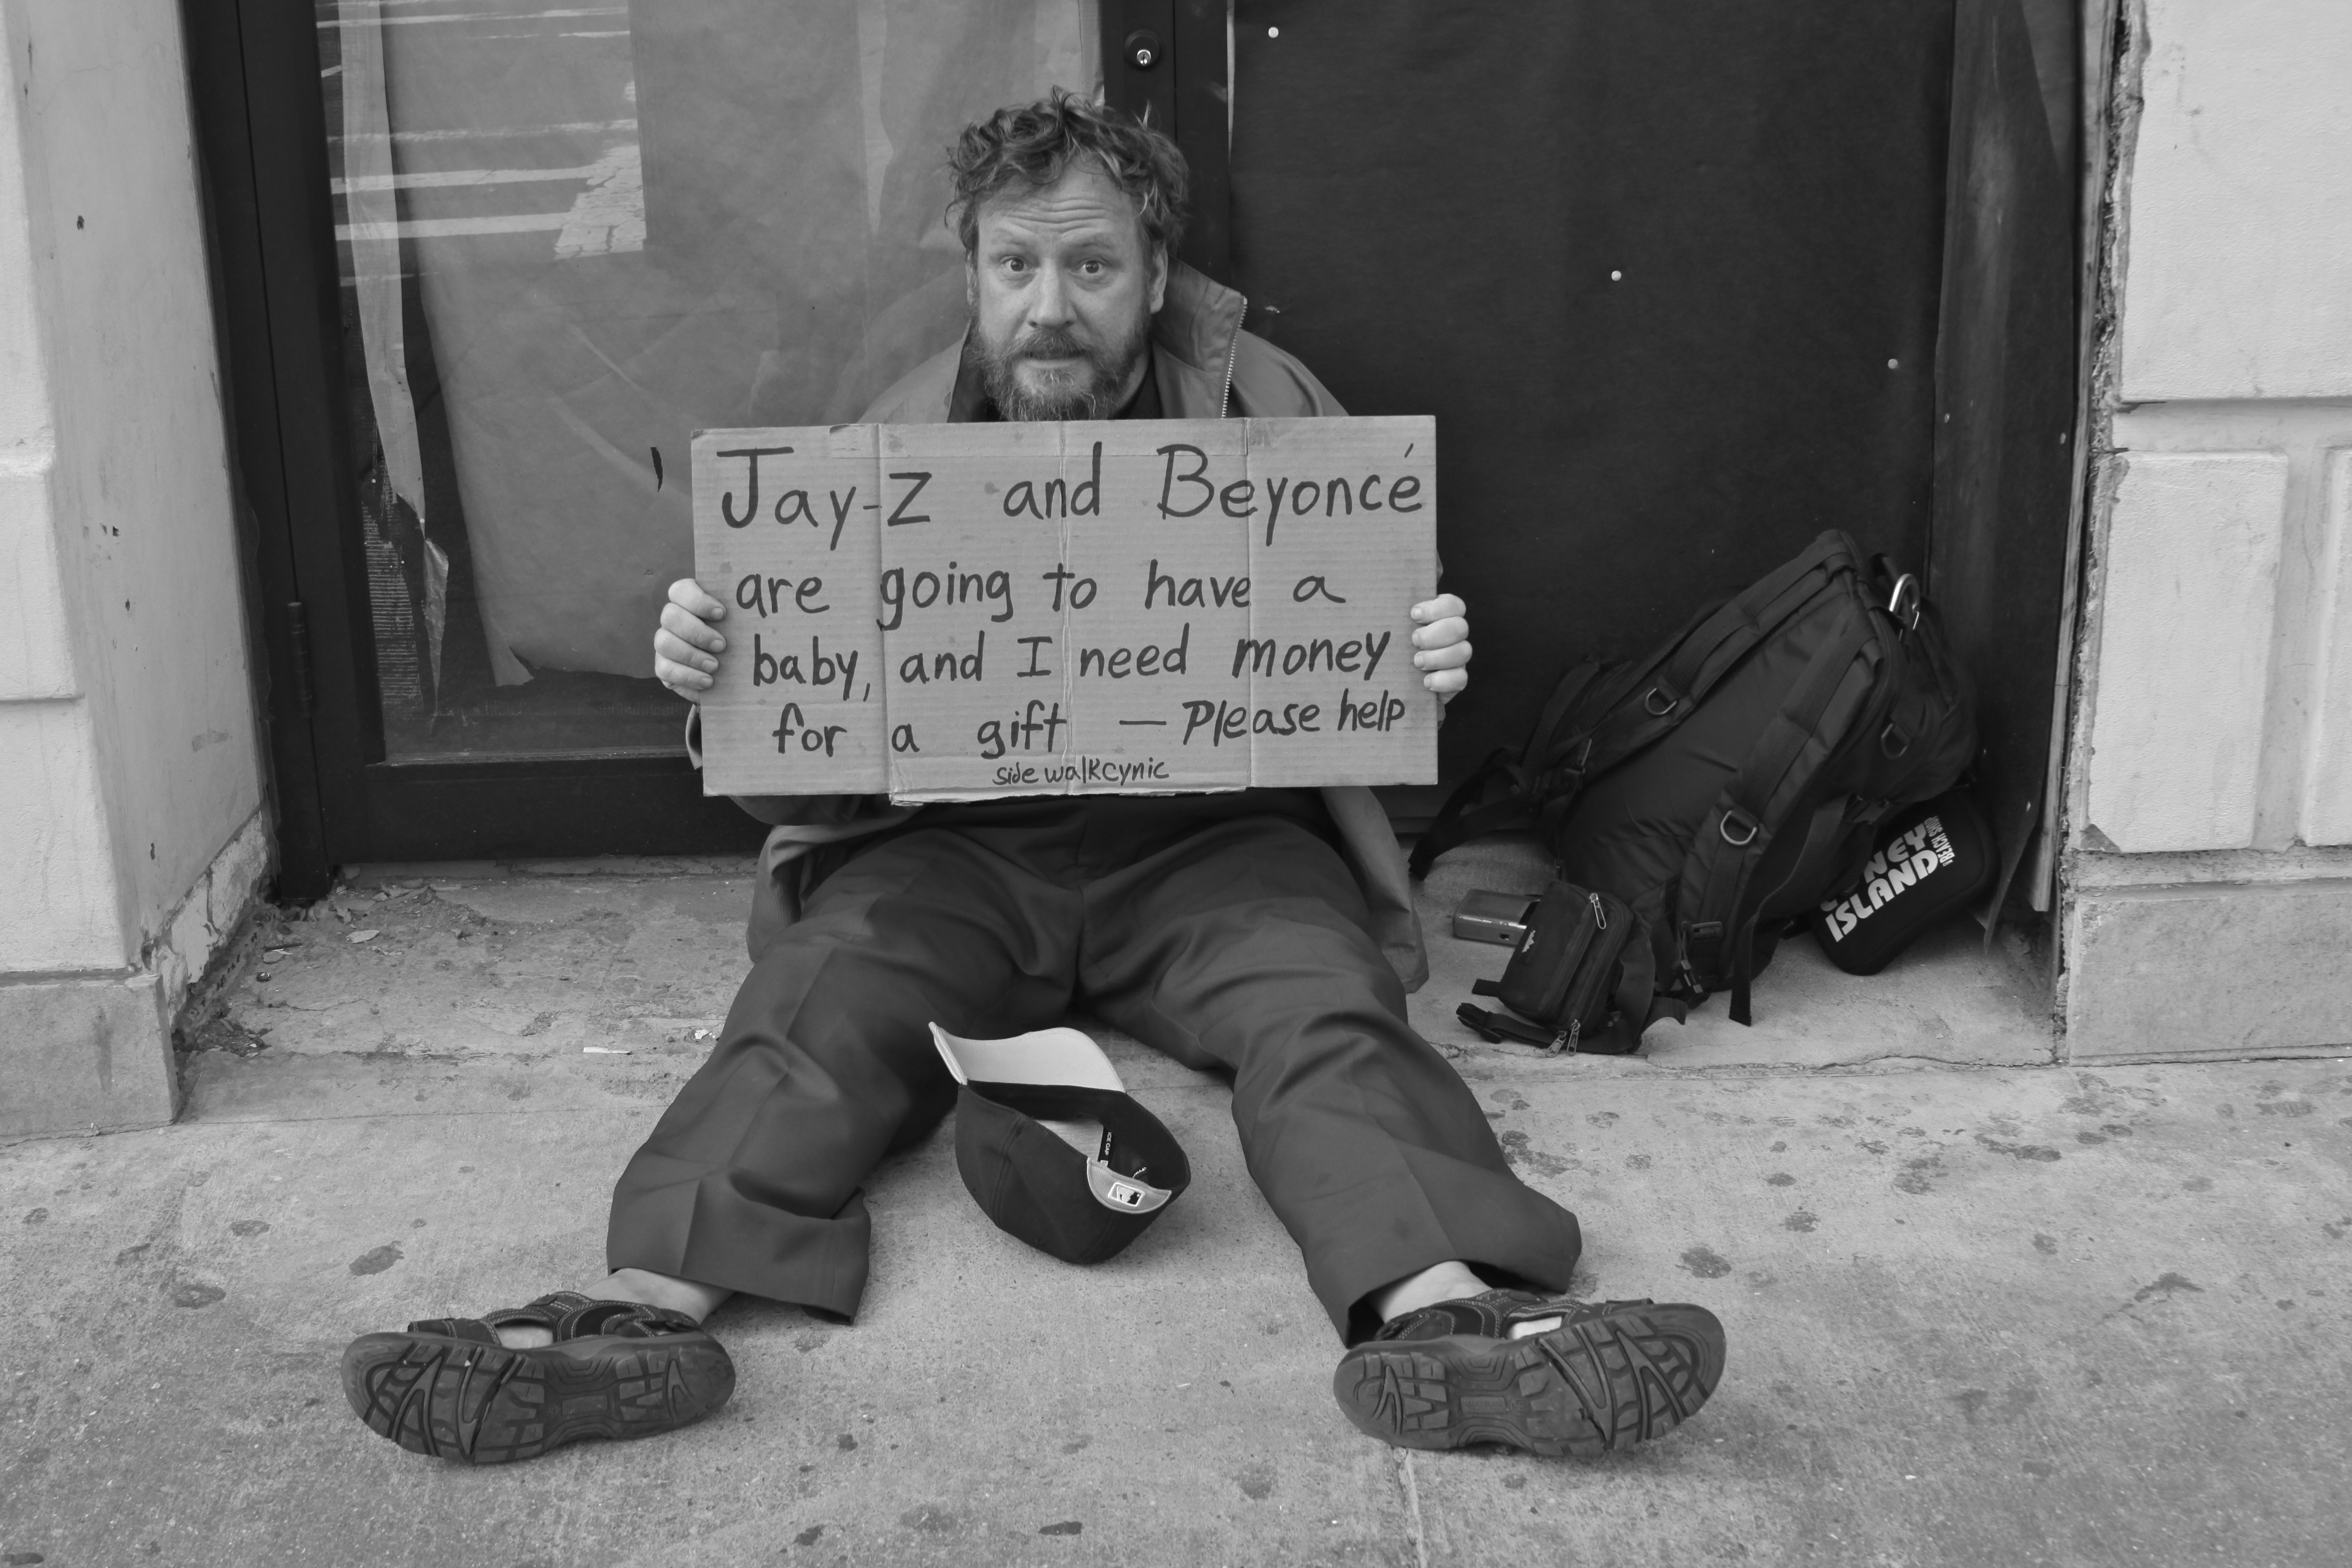 Jay-Z and Beyoncé
are going to have a
baby, and I need money
for a gift — Please help
sidewalkcynic
ISLAND
BEACH SHOP